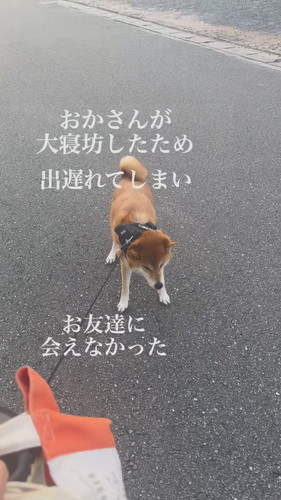 おかさんが
大寝坊したため
出遅れてしまい
お友達に
会えなかった